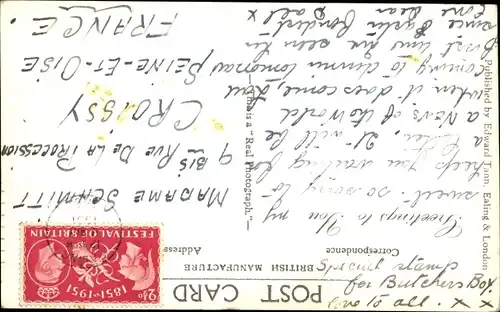 POST CARD
BRITISH MANUFACTURE
Correspondence
Address
Special stamp
for Butchers Box
Love to all. x x
Greetings to you my
sweet. so sorry to
keep you waiting for
a letter. It will be
a News of the World
when it does come, Lou
coming to dinner tomorrow
First time I've seen her
since
x
Published by Edward Tann, Ealing & London
This is a "Real Photograph."
MADAME SCHMITT
9 BIS RUE DE LA PROCESSION
CROISSY
SEINE-ET-OISE
FRANCE.
FESTIVAL OF BRITAIN
1851-1951
2½D